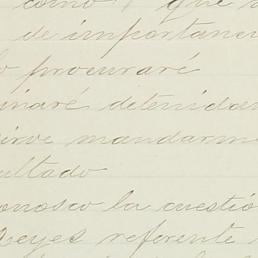 como, que
de importanc
procuraré
inaré detenidam
sirve mandarm
ultado
onosco la cuestió
Reyes referente